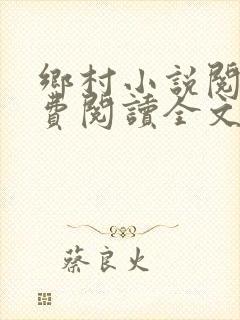 鄉村小說閱
費閱讀全文
蔡良火